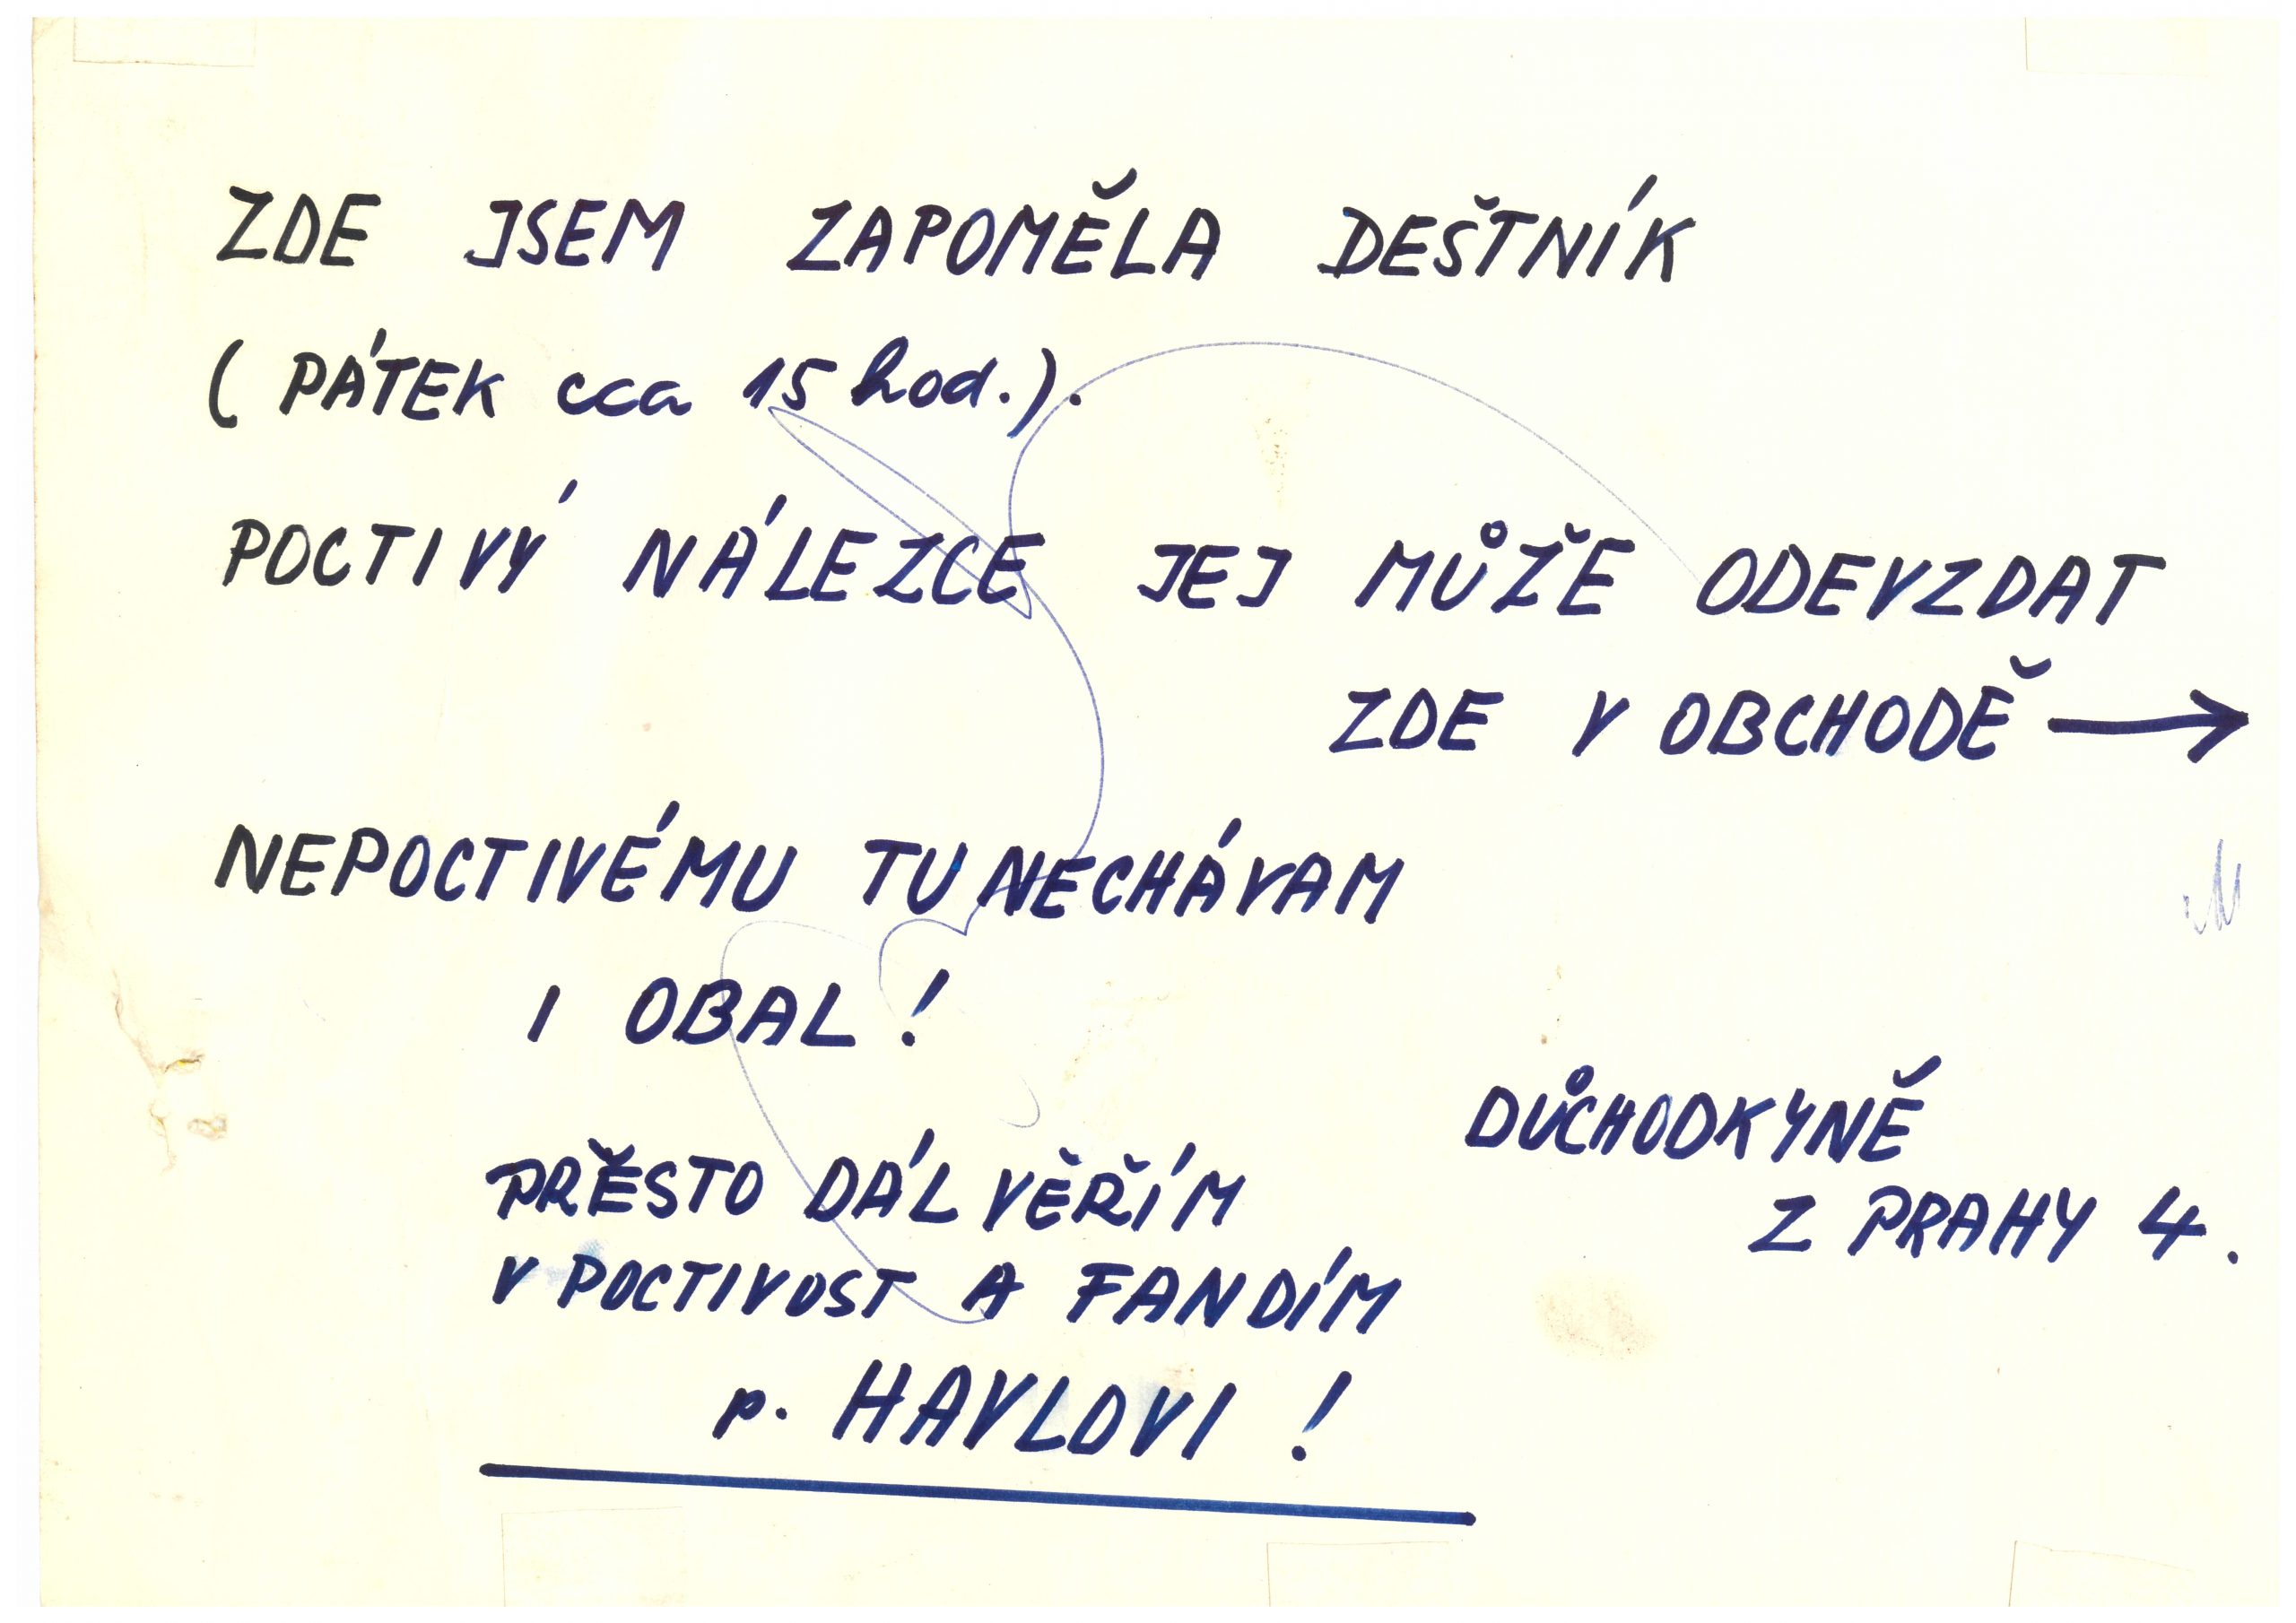 ZDE JSEM ZAPOMĚLA DEŠTNÍK
( PÁTEK cca 15 hod.).
POCTIVÝ NÁLEZCE JEJ MŮŽE ODEVZDAT
ZDE V OBCHODĚ →
NEPOCTIVÉMU TU NECHÁVAM
I OBAL !
DŮCHODKYNĚ
Z PRAHY 4.
PŘESTO DÁL VĚŘÍM
V POCTIVOST A FANDÍM
p. HAVLOVI !